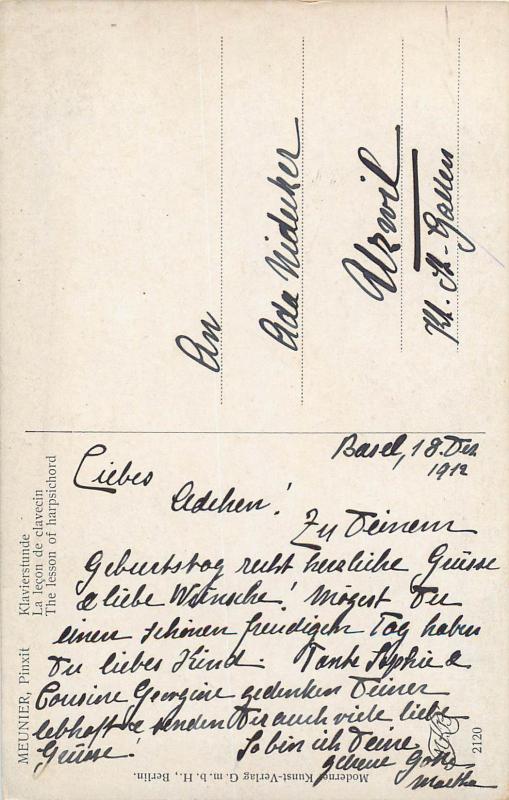 An
Ada Nideker
Uzwil
Kt. St. Gallen
Basel, 18. Dez
1912
Liebes
Adchen!
Zu Deinem
Geburtstag recht herzliche Grüsse
& liebe Wünsche! Mögest Du
einen schönen freudigen Tag haben
Du liebes Kind. Tante Sophie &
Cousine Georgine gedenken Deiner
lebhaft & senden Dir auch viele liebe
Grüsse! So bin ich Deine
getreue Gotte
Martha
MEUNIER, Pinxit
Klavierstunde
La leçon de clavecin
The lesson of harpsichord
Moderner Kunst-Verlag G. m. b. H., Berlin.
2120